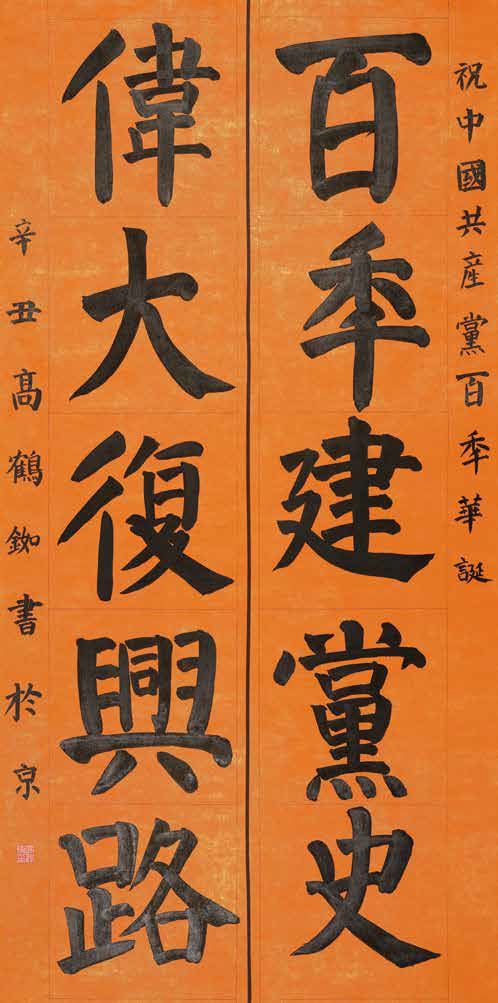 祝中國共産黨百年華誕
百年建黨史
偉大復興路
辛丑高鶴銣書於京